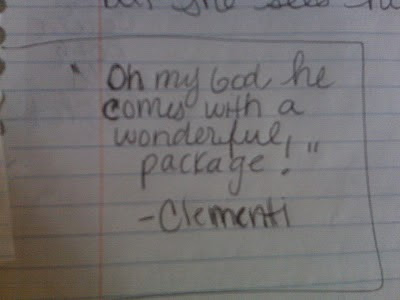 but she sees
" Oh my God he
comes with a
wonderful,
package!"
-Clementi